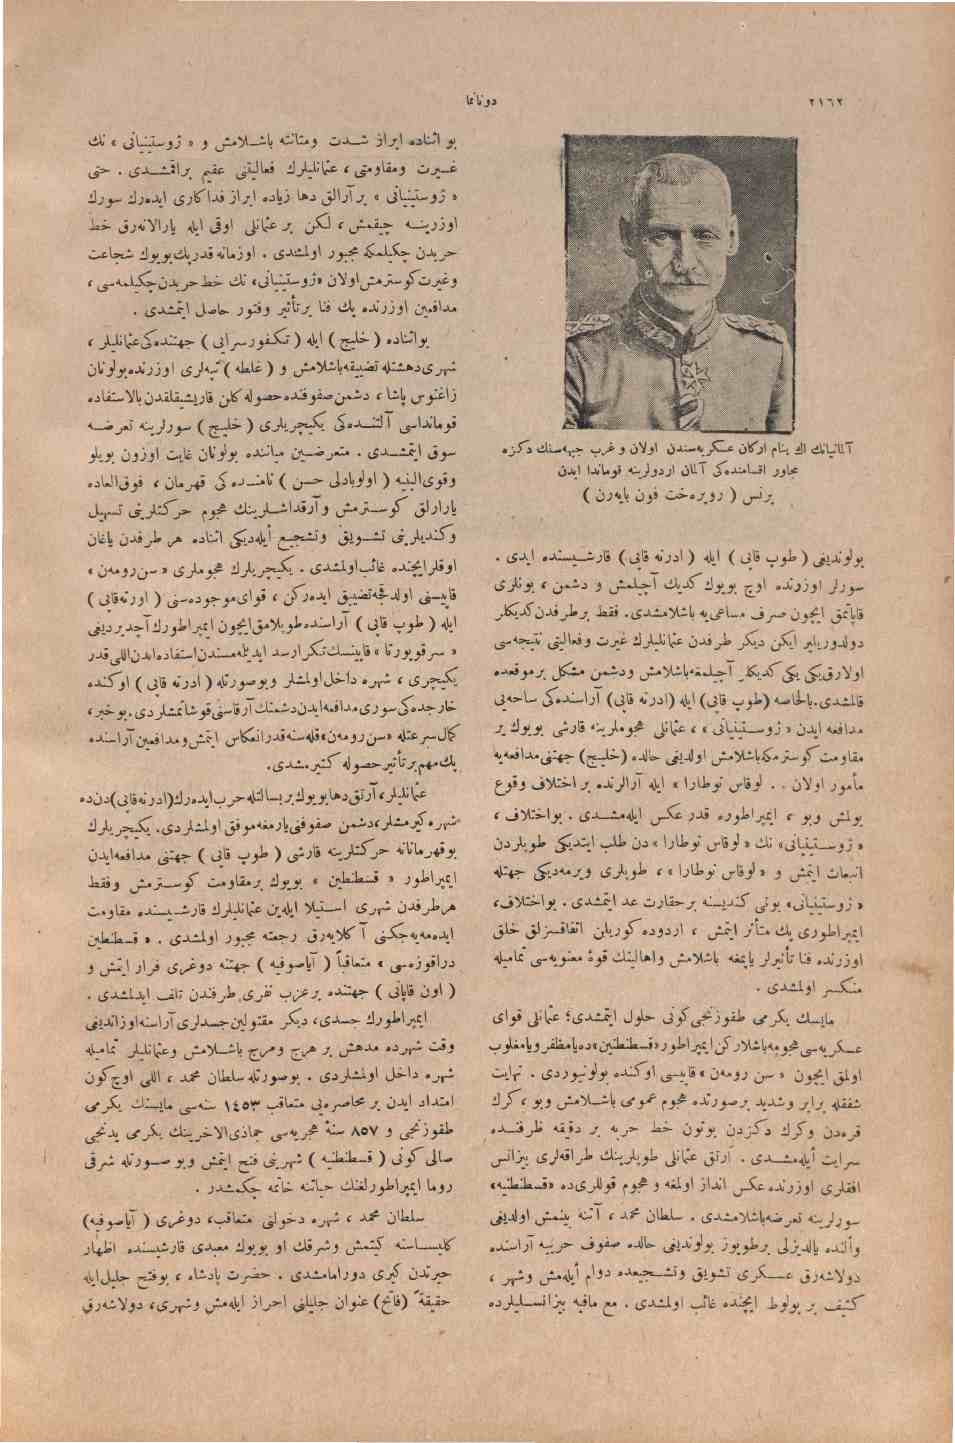 ٢١٦٢
دونانما
آلمانیانك اك بنام اركان عسكریه‌سندن اولان و غرب جبهه‌سنك دكزه
مجاور اقسامنده‌كی آلمان اردولرینه قوماندا ایدن
پرنس ( روپره‌خت فون بایه‌رن )
بولوندیغی ( طوپ قاپی ) ایله ( ادرنه قاپی ) قارشـیسنده ایدی .
سورلر اوزرنده اوچ بویوك كدیك آچیلمش و دشمن ، بونلری
قاپاتمق ایچون صرف مساعی‌یه باشلامشدی. فقط برطرفدن كدیكلر
دولدوریلیر ایكن دیكر طرفدن عثمانلیلرك غیرت وفعالیتی نتیجه‌سی
اولارق یكی یكی كدیكلر آچیلمغه‌باشلامش ودشمن مشكل برموقعده
قالمشدی. بالخاصه (طوپ قاپی) ایله (ادرنه قاپی) آراسنده‌كی ساحه‌یی
مدافعه ایدن « ژوسـتینیانی » ، عثمانلی هجوملرینه قارشی بویوك بر
مقاومت كوسترمكه‌باشلامش اولدیغی حالده (خلیج) جهتنی‌مدافعه‌یه
مأمور اولان . . لوقاس نوطارا » ایله آرالرنده بر اختلاف وقوع
بولمش وبو ، ایمپراطوره قدر عكس ایله‌مشـدی . بواختلاف ،
« ژوسـتینیانی» نك «لوقاس نوطارا » دن طلب ایتدیكی طوپلردن
انبعاث ایتمش و «لوقاس نوطارا » ، طوپلری ویرمه‌دیكی جهتله
« ژوستینیانی» بونی كندیسنه برحقارت عد ایتمشدی . بواختلاف،
ایمپراطوری پك متأثر ایتمش ، اردوده كوریلن اتفاقسزلق خلق
اوزرنده فنا تأثیرلر یاپمغه باشلامش واهالینك قوۀ معنویه‌سی تمامیله
منكسر اولمشدی .
مایسك یكرمی طقوزنجی كونی حلول ایتمشدی؛ عثمانلی قوای
عسـكریه‌سی هجومه‌باشلاركن ایمپراطور «قسـطنطین» ده یامظفر ویامغلوب
اولمق ایچون « سن رومه‌ن » قاپیسی اوكنده بولونیوردی . نهایت
شفقله برابر وشدید برصورتده هجوم عمومی باشـلامش وبو ، كرك
قره‌دن وكرك دكزدن بوتون خط حربه بر دقیقه ظرفنـده
سرایت ایله‌مشـدی . آرتق عثمانلی طوپلرینك طراقه‌لری بیزانس
افقلری اوزرنده عكس انداز اولمغه و هجوم قوللری‌ده «قسـطنطنیه»
سورلرینه تعرضه‌باشلامشدی . سلطان محمد ، آتنه بینمش اولدیغی
وألنده یالدیزلی برطوپوز بولوندیغی حالده صفوف حربیه آراسنده
دولاشه‌رق عسـكری تشویق وتشـجیعده دوام أیله‌مش وشهر ،
كثیف بر بولوط ایچنده غائب اولمشدی . مع مافیه بیزانسـلیلرده
بو اثناده ابراز شـدت ومتانته باشـلامش و « ژوستینیانی » نك
غـیرت ومقاومتی ، عثمانلیلرك فعالیتنی عقیم براقمشـدی . حتی
« ژوستینیانی » برآرالق دها زیاده ابراز فداكاری ایده‌رك سورك
اوزرینـه چیقمش ، لكن بر عثمانلی اوقی ایله یارالانه‌رق خط
حربدن چكیلمكه مجبور اولمشدی . اوزمانه قدر پك بویوك شجاعت
وغیرت كوسترمش اولان «ژوستینیانی» نك خط حربدن چكیلمه‌سی ،
مدافعین اوزرنده پك فنا برتأثیر وفتور حاصل ایتمشدی .
بواثناده ( خلیج ) ایله ( تكفورسرایی ) جهتنده‌كی عثمانلیلر ،
شهری دهشتله تضییقه‌باشلامش و ( غلطه ) تپه‌لری اوزرنده بولونان
زاغنوس پاشا ، دشمن صفوفنده حصوله كلن قاریشیقلقدن بالاستفاده
قومانداسی آلتنـده‌كی یكیچریلری ( خلیـج ) سورلرینه تعرضـه
سوق ایتمشـدی . متعرضـین میاننده بولونان غایت اوزون بویلو
وقوی‌البنیه ( اولوبادلی حسن ) نامنـده كی قهرمان ، فوق‌العاده
یارارلق كوسـترمش وآرقداشـلرینك هجوم حركتلرینی تسهیل
وكندیلرینی تشـویق وتشجیع أیله‌دیكی اثناده هر طرفدن یاغان
اوقلر ایچنده غائب‌اولمشدی . یكیچریلرك هجوملری « سن رومه‌ن »
قاپیسنی اولدقجه تضییق ایده‌ركن ، قوای موجوده‌سنی ( اورته‌قاپی )
ایله ( طوپ قاپی ) آراسنده طوپلامق ایچون ایمپراطورك آچدیردیغی
« سرقوپورتا » قاپیسنك تكرار سد ایدیلمه‌مسندن استفاده ایدن اللی قدر
یكیچری ، شهره داخل اولمشلر وبوصورتله ( ادرنه قاپی ) اوكنده
خارجده‌كی سوری مدافعه ایدن دشمنك آرقاسنی قوشاتمشلردی. بوخبر،
كمال سرعتله «سن رومه‌ن» قله‌سنه قدر انعكاس ایتمش ومدافعین آراسنده
پك مهم بر تأثیر حصوله كتیرمشدی.
عثمانلیلر ، آرتق دها بویوك بر بسالتله حرب ایده‌رك (ادرنه قاپی) دن ده
شهره كیرمشلر ، دشمن صفوفنی یارمغه موفق اولمشلردی. یكیچریلرك
بوقهرمانانه حركتلرینه قارشی ( طوپ قاپی ) جهتنی مدافعه‌ایدن
ایمپراطور « قسطنطین » بویوك برمقاومت كوسـترمش وفقط
هرطرفدن شهری اسـتیلا ایله‌ین عثمانلیلرك قارشـیسنده مقاومت
ایده‌مه‌یه‌جكنی آ كلایه‌رق رجعته مجبور اولمشدی . « قسـطنطین
دراقوزه‌سی » متعاقباً ( آیاصوفیه ) جهتنه دوغری فرار ایتمش و
( اون قاپانی ) جهتنده بر عزب نفری طرفندن تلف ایدلمشدی .
ایمپراطورك جسدی ، دیكر مقتولین جسدلری آراسنه اوزاندیغی
وقت شهرده مدهش بر هرج ومرج باشـلامش وعثمانلیلر تمامیله
شهره داخل اولمشلردی . بوصورتله سلطان محمد ، اللی اوچ كون
امتداد ایدن بر محاصره‌یی متعاقب ١٤٥٣ سنه‌سی مایسنك یكرمی
طقوزنجی و ٨٥٧ سنۀ هجریه‌سی جماذی‌الاخرینك یكرمی یدنجی
صالی كونی ( قسـطنطنیه ) شهرینی فتح ایتمش وبو صـورتله شرقی
روما ایمپراطورلغنك حیاتنه خاتمه چكمشدر .
سلطان محمد ، شهره دخولنی متعاقب، دوغری ( آیاصوفیه)
كلیسـاسنه كیتمش وشرقك او بویوك معبدی قارشیسنده اظهار
حیرتدن كیری دورامامشدی . حضرت پادشاه ، بوفتح جلیل ایله
حقیقةً (فاتح) عنوان جلیلنی احراز ایله‌مش وشهری، دولاشه‌رق